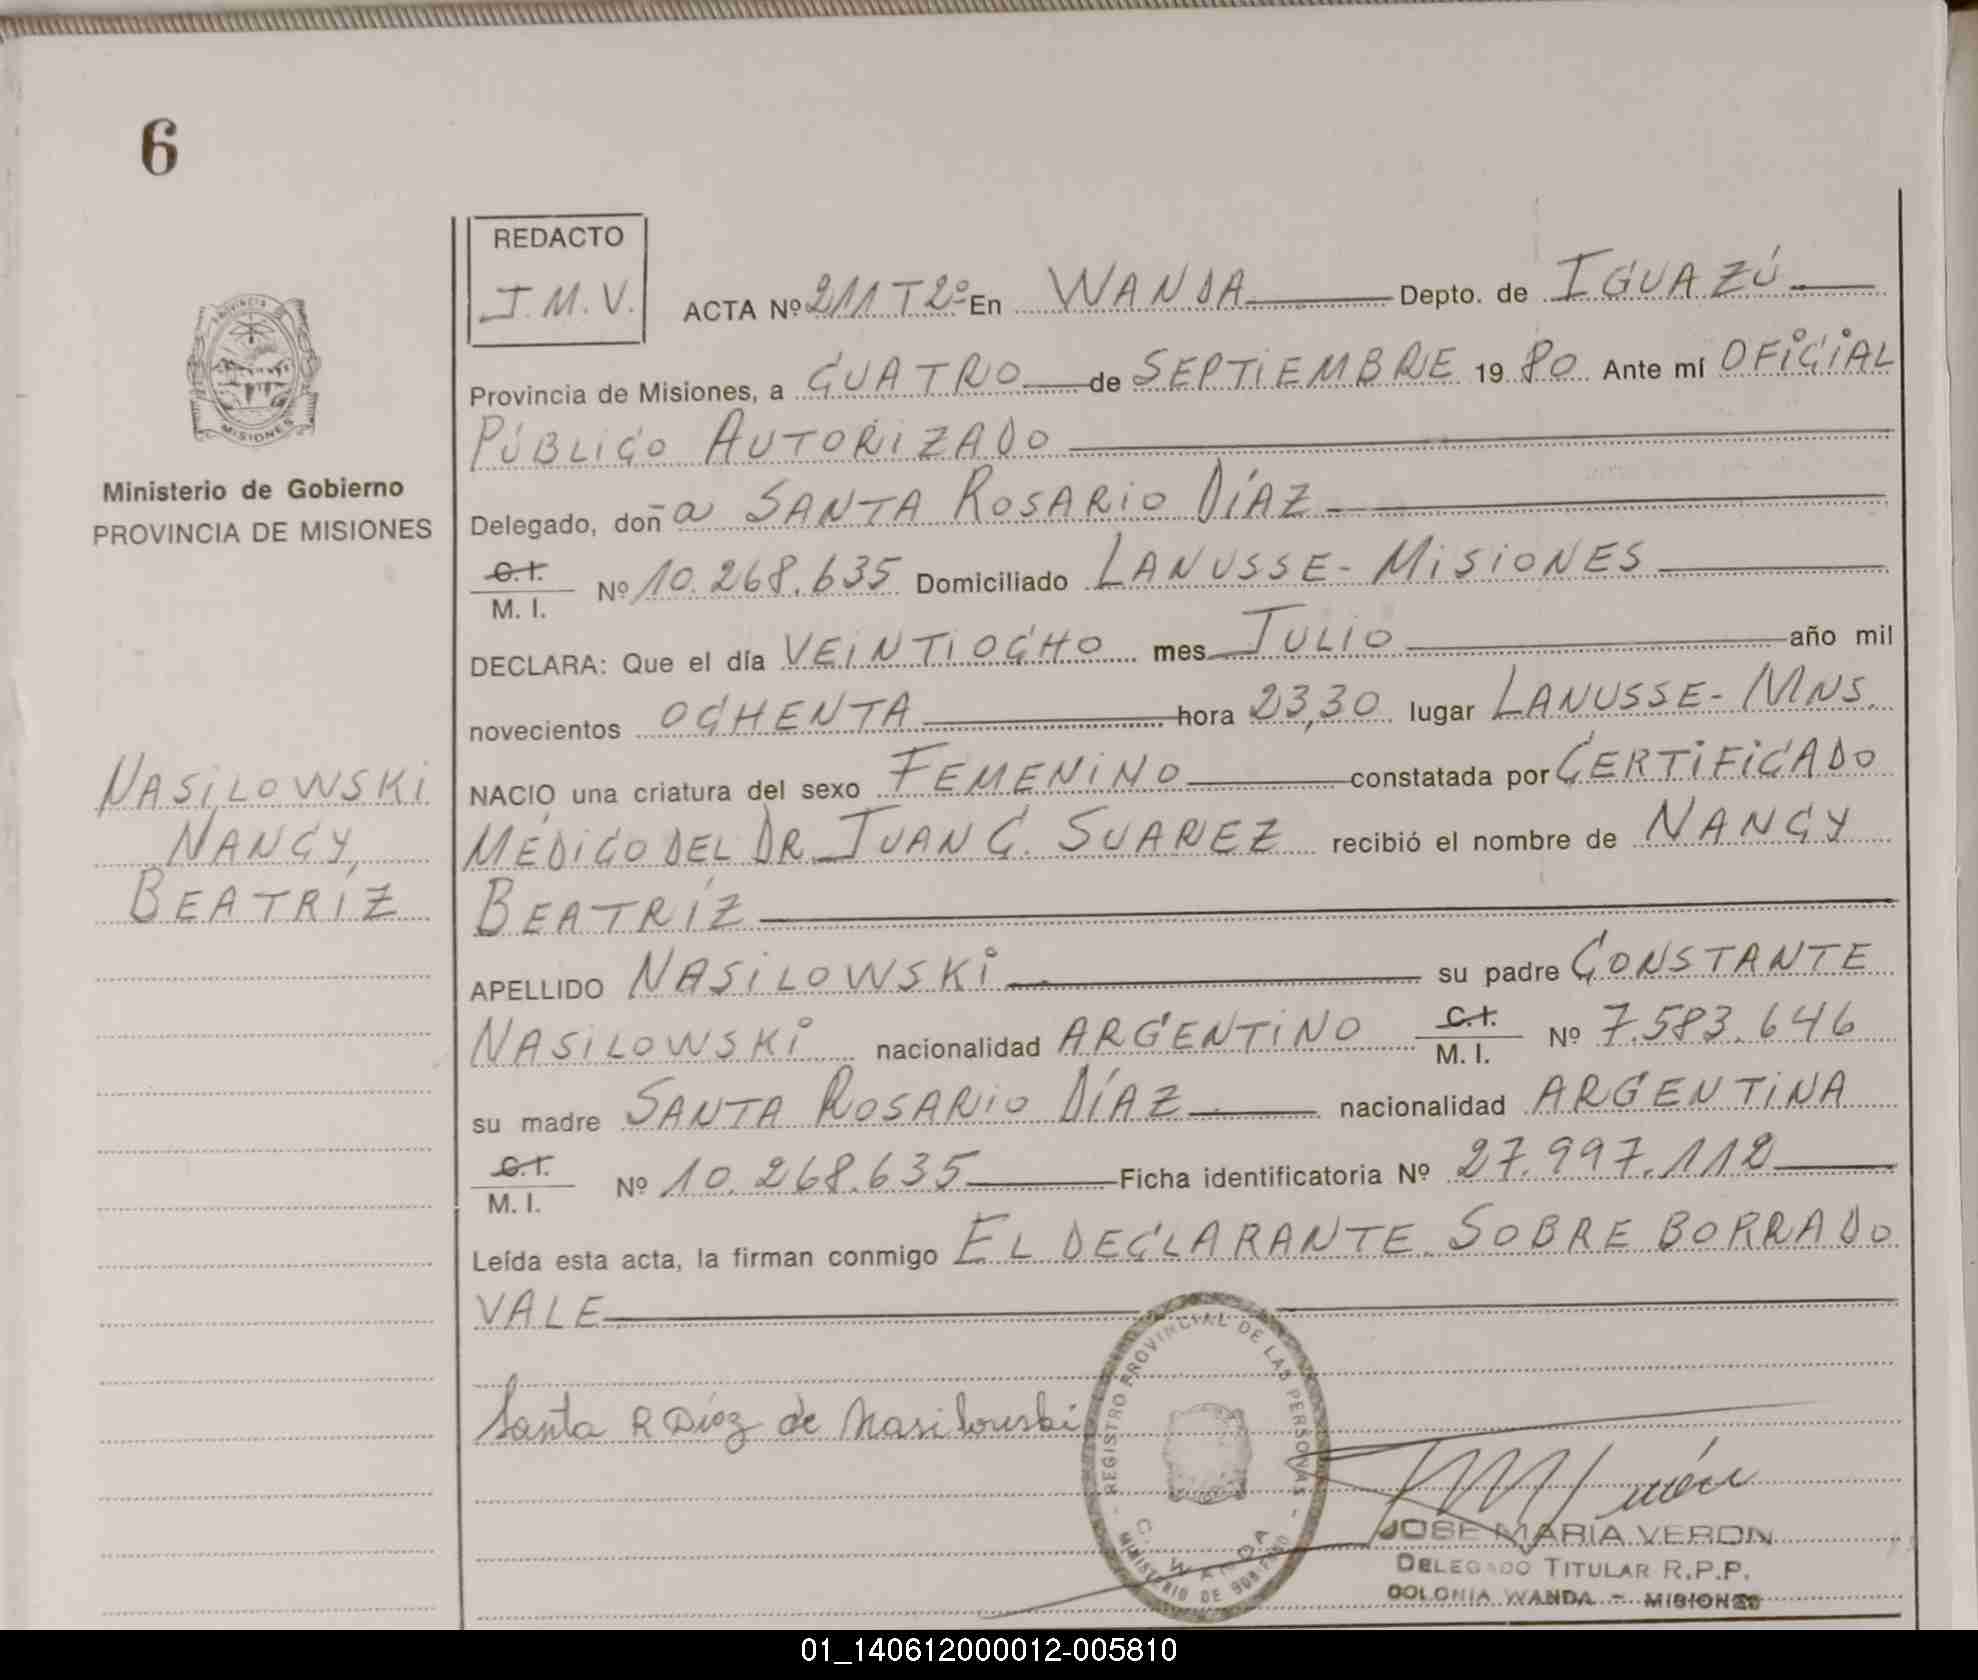 6
REDACTO
J.M.V.
ACTA Nº 211 T2º En WANDA Depto. de IGUAZÚ
Provincia de Misiones, a CUATRO de SEPTIEMBRE 1980 Ante mí OFICIAL
PÚBLICO AUTORIZADO
Delegado, doña SANTA ROSARIO DÍAZ
C.I.
M. I. Nº 10.268.635 Domiciliado LANUSSE - MISIONES
DECLARA: Que el día VEINTIOCHO mes JULIO año mil
novecientos OCHENTA hora 23,30 lugar LANUSSE - MNS.
NACIO una criatura del sexo FEMENINO constatada por CERTIFICADO
MÉDICO DEL DR. JUAN C. SUAREZ recibió el nombre de NANCY
BEATRÍZ
APELLIDO NASILOWSKI su padre CONSTANTE
NASILOWSKI nacionalidad ARGENTINO C.I.
M. I. Nº 7.583.646
su madre SANTA ROSARIO DÍAZ nacionalidad ARGENTINA
C.I.
M. I. Nº 10.268.635 Ficha identificatoria Nº 27.997.112
Leída esta acta, la firman conmigo EL DECLARANTE. SOBRE BORRADO
VALE
Santa R Díaz de Nasilowski
PROVINCIA
MISIONES
Ministerio de Gobierno
PROVINCIA DE MISIONES
NASILOWSKI
NANCY,
BEATRÍZ
REGISTRO PROVINCIAL DE LAS PERSONAS
MINISTERIO DE GOBIERNO
WANDA
JOSE MARIA VERON
DELEGADO TITULAR R.P.P.
COLONIA WANDA - MISIONES
01_140612000012-005810